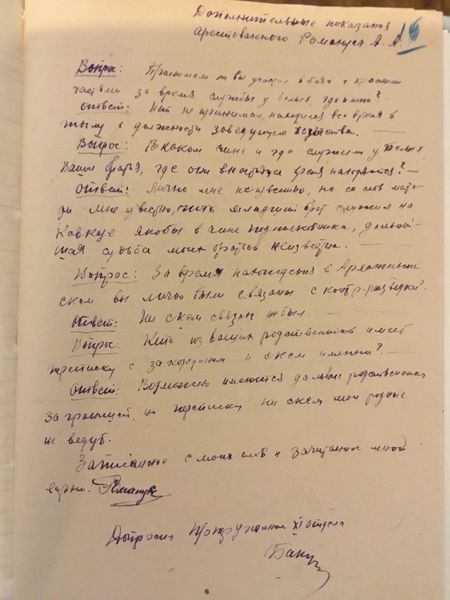 Дополнительные показания
арестованного Романуса А. А. 16
Вопрос: Принимали ли вы участие в боях с красными
частями за время службы у белых, где именно?
Ответ: Нет не принимал, находился все время в
тылу в должности заведующего хозяйства.
Вопрос: В каком чине и где служили у белых
Ваши братья, где они в настоящее время находятся? —
Ответ: Лично мне не известно, но со слов мате-
ри мне известно, младший брат служил на
Кавказе якобы в чине подполковника, дальней-
шая судьба моих братьев неизвестна. —
Вопрос: За время нахождения в
ском вы лично были связаны с контр-разведки?
Ответ: Ни с кем связан не был.
Вопрос: Кто из ваших родственников имеет
переписку с за кордоном и с кем именно? —
Ответ: Возможно имеются дальние родственники
за границей, но переписку ни с кем мои родные
не ведут.
Записанные с моих слов и зачитанные мной
верно: Романус
Допросил XI отдела